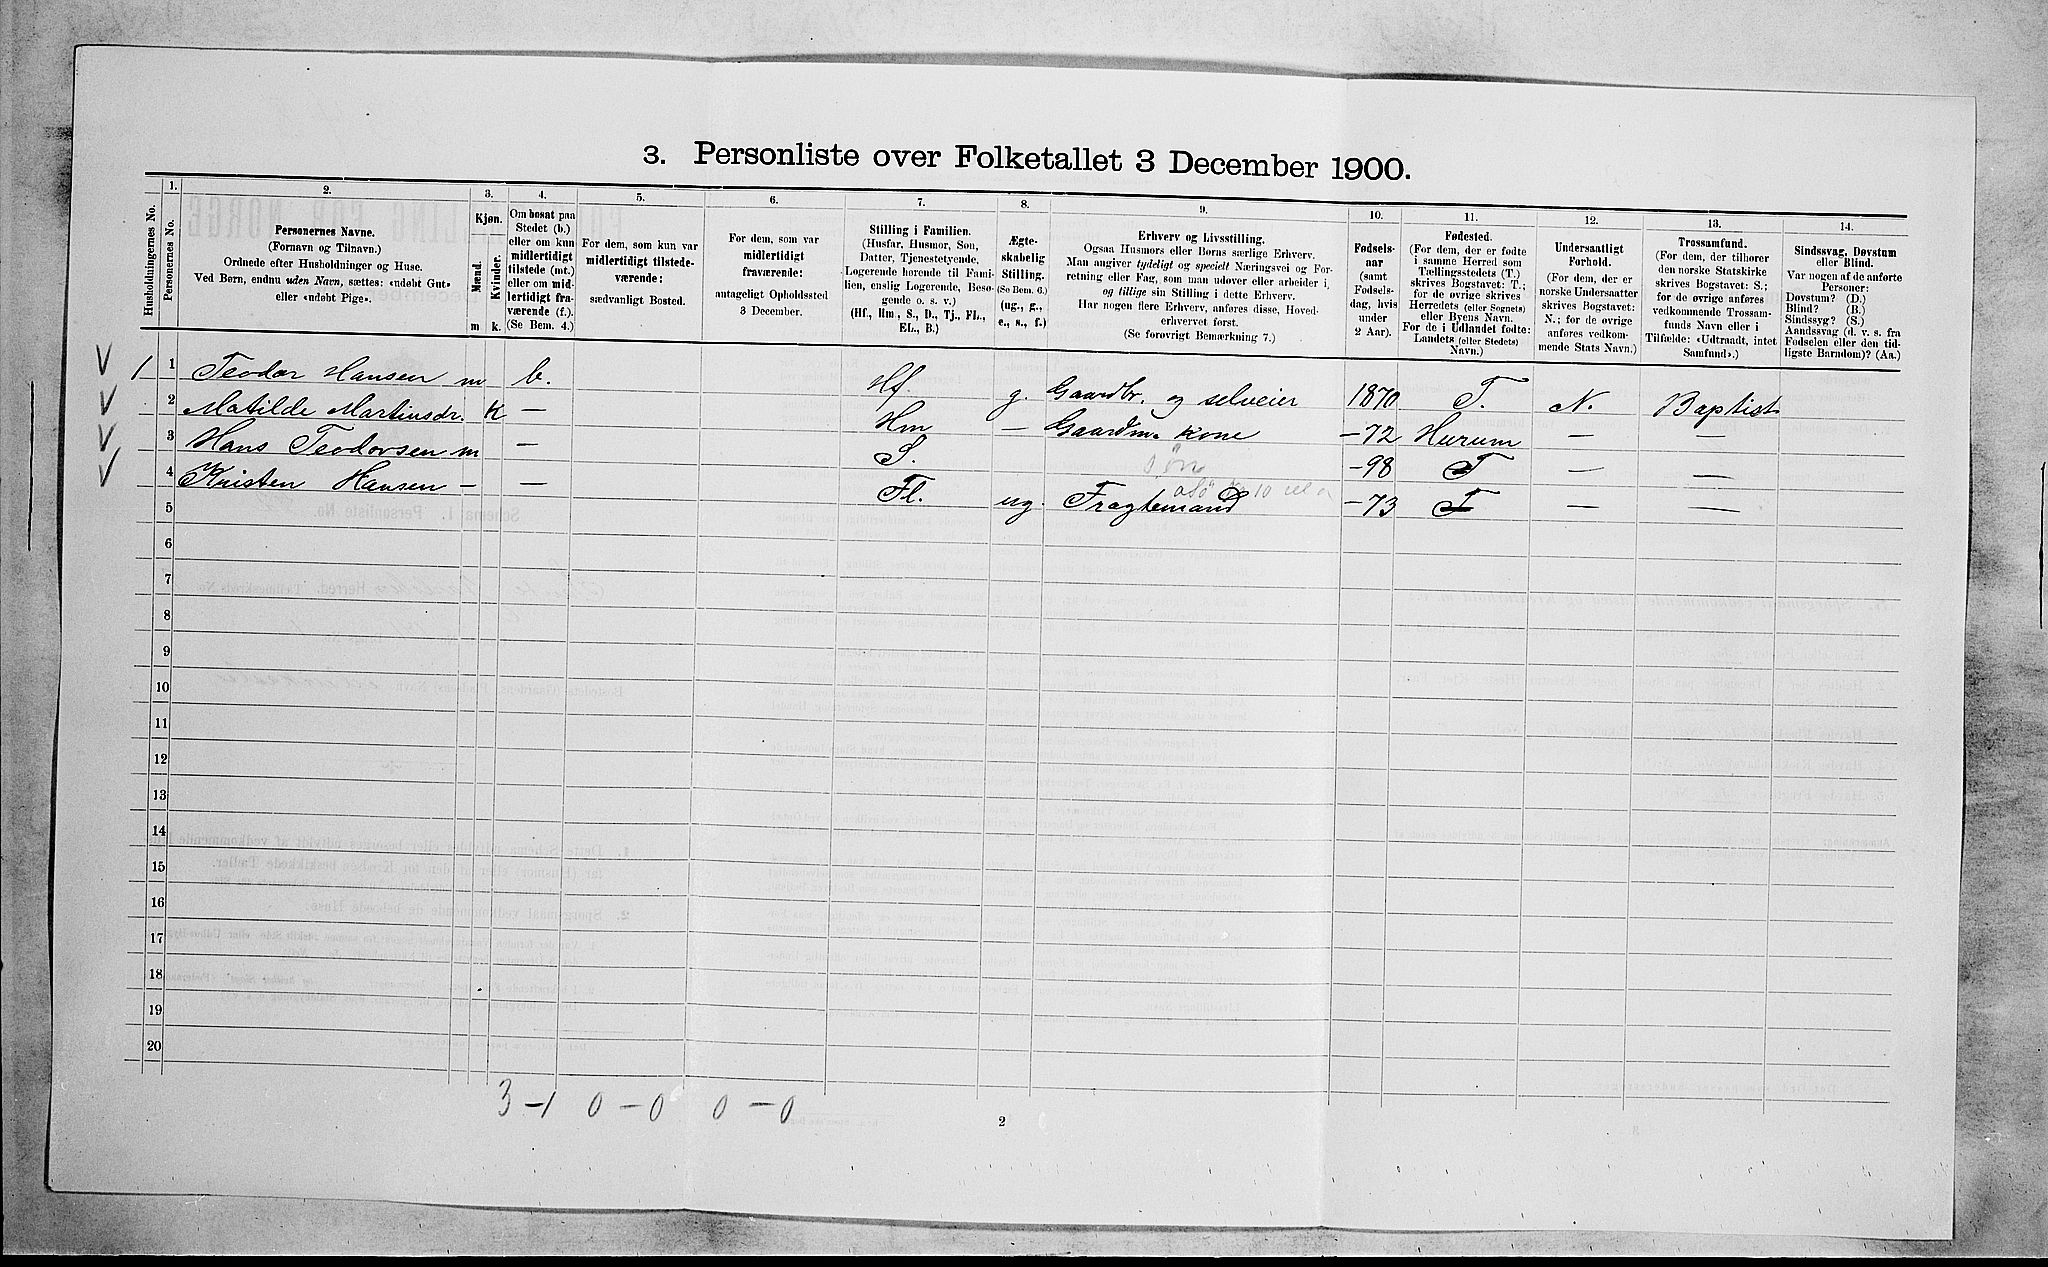 3. Personliste over Folketallet 3 December 1900.
1. 2. 3. 4. 5. 6. 7. 8. 9. 10. 11. 12. 13. 14.
Husholdningernes No.
Personernes No.
Personernes Navne.
(Fornavn og Tilnavn.)
Ordnede efter Husholdninger og Huse.
Ved Børn, endnu uden Navn, sættes: «udøbt Gut»
eller «udøbt Pige».
Kjøn.
Mænd.
Kvinder.
m k.
Om bosat paa
Stedet (b.)
eller om kun
midlertidigt
tilstede (mt.)
eller om mid-
lertidigt fra-
værende (f.).
(Se Bem. 4.)
For dem, som kun var
midlertidigt tilstede-
værende:
sædvanligt Bosted.
For dem, som var
midlertidigt
fraværende:
antageligt Opholdssted
3 December.
Stilling i Familien.
(Husfar, Husmor, Søn,
Datter, Tjenestetyende,
Logerende hørende til Fami-
lien, enslig Logerende, Besø-
gende o. s. v.)
(Hf., Hm., S., D., Tj., FL.,
EL., B.)
Ægte-
skabelig
Stilling.
(Se Bem. 6.)
(ug., g.,
e., s., f.)
Erhverv og Livsstilling.
Ogsaa Husmors eller Børns særlige Erhverv.
Man angiver tydeligt og specielt Næringsvei og For-
retning eller Fag, som man udøver eller arbeider i,
og tillige sin Stilling i dette Erhverv.
Har nogen flere Erhverv, anføres disse, Hoved-
erhvervet først.
(Se forøvrigt Bemærkning 7.)
Fødsels-
aar
(samt
Fødsels-
dag, hvis
under
2 Aar).
Fødested.
(For dem, der er fødte
i samme Herred som
Tællingsstedets (T.)
skrives Bogstavet: T.;
for de øvrige skrives
Herredets (eller Sognets)
eller Byens Navn.
For de i Udlandet fødte:
Landets (eller Stedets)
Navn.)
Undersaatligt
Forhold.
(For dem, der er
norske Undersaatter
skrives Bogstavet:
N.; for de øvrige
anføres vedkom-
mende Stats Navn.)
Trossamfund.
(For dem, der tilhører
den norske Statskirke
skrives Bogstavet: S.;
for de øvrige anføres
vedkommende Trossam-
funds Navn eller i
Tilfælde: «Udtraadt, intet
Samfund».)
Sindssvag, Døvstum
eller Blind.
Var nogen af de anførte
Personer:
Døvstum? (D.)
Blind? (B.)
Sindssyg? (S.)
Aandssvag (d. v. s. fra
Fødselen eller den tid-
ligste Barndom)? (Aa.)
1 1 Teodor Hansen m b. Hf. g. Gaardbr. og selveier 1870 T. N. Baptist
2 Matilde Martinsdr. K — Hm — Gaardm. kone —72 Hurum — —
3 Hans Teodorsen m — S. søn —98 T — —
4 Kristen Hansen — — Fl. ug. Fragtemand —73 T — —
5
6
7
8
9
10
11
12
13
14
15
16
17
18
19
20
3 – 1 0 – 0 0 – 0
2